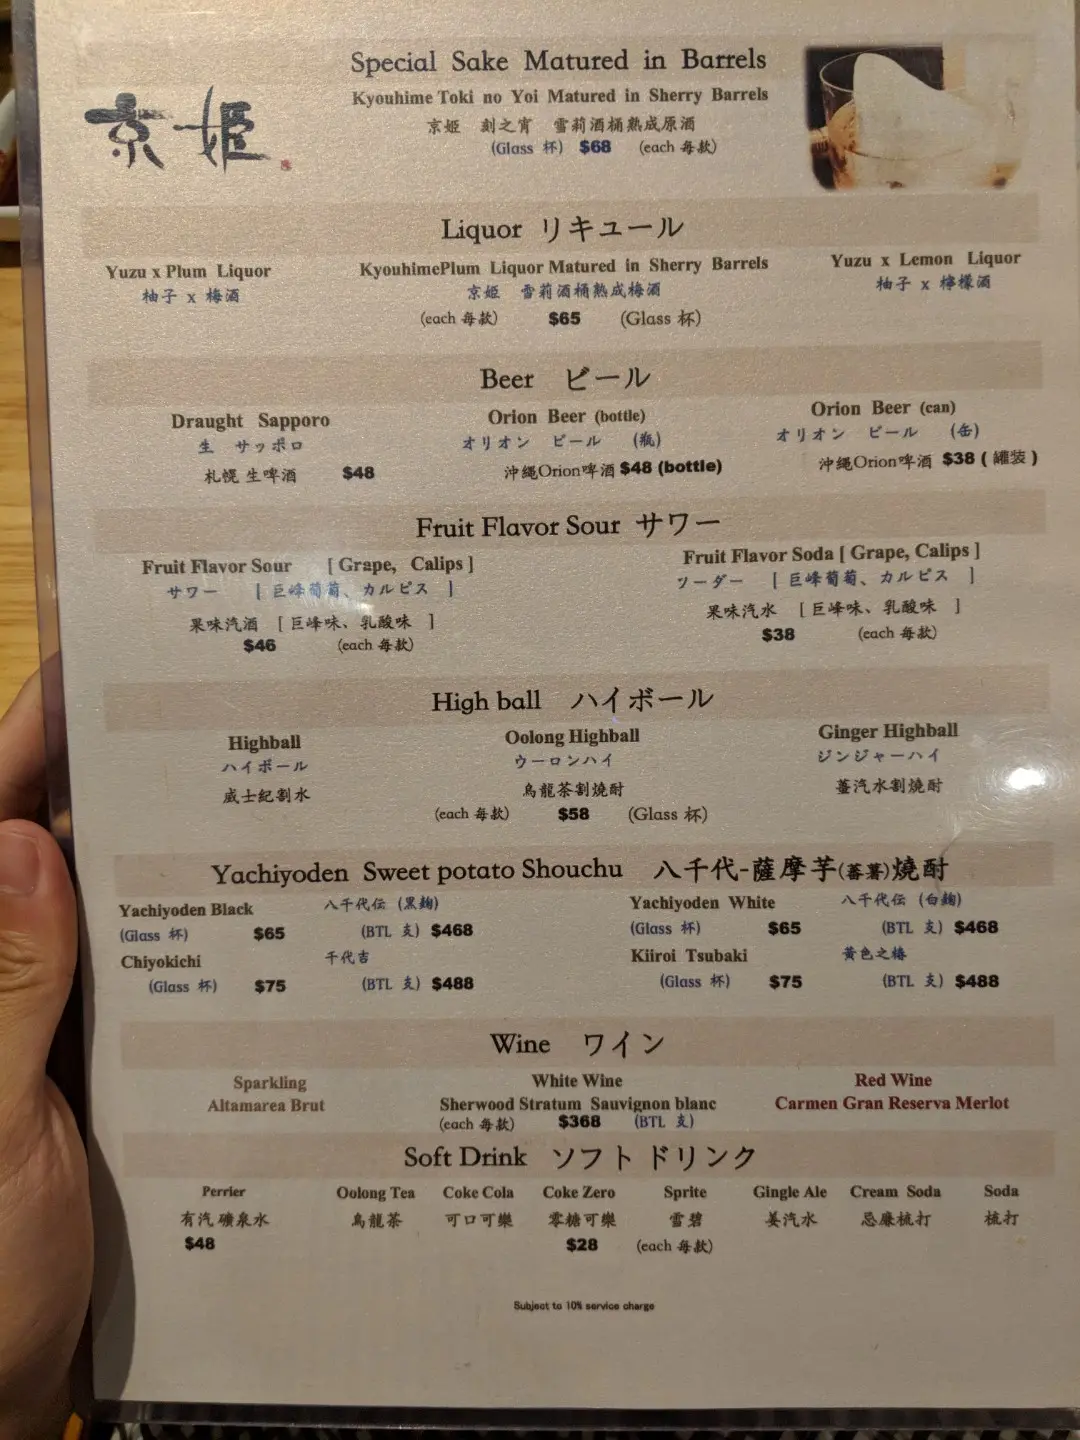 京姫
Special Sake Matured in Barrels
Kyouhime Toki no Yoi Matured in Sherry Barrels
京姫 刻之宵 雪莉酒桶熟成原酒
(Glass 杯) $68 (each 每款)
Liquor リキュール
Yuzu x Plum Liquor
柚子 x 梅酒
KyouhimePlum Liquor Matured in Sherry Barrels
京姫 雪莉酒桶熟成梅酒
Yuzu x Lemon Liquor
柚子 x 檸檬酒
(each 每款) $65 (Glass 杯)
Beer ビール
Draught Sapporo
生 サッポロ
札幌 生啤酒 $48
Orion Beer (bottle)
オリオン ビール (瓶)
沖繩Orion啤酒 $48 (bottle)
Orion Beer (can)
オリオン ビール (缶)
沖繩Orion啤酒 $38 ( 罐装 )
Fruit Flavor Sour サワー
Fruit Flavor Sour [ Grape, Calips ]
サワー [ 巨峰葡萄、カルピス ]
果味汽酒 [ 巨峰味、乳酸味 ]
$46 (each 每款)
Fruit Flavor Soda [ Grape, Calips ]
ソーダー [ 巨峰葡萄、カルピス ]
果味汽水 [ 巨峰味、乳酸味 ]
$38 (each 每款)
High ball ハイボール
Highball
ハイボール
威士紀割水
Oolong Highball
ウーロンハイ
烏龍茶割燒酎
Ginger Highball
ジンジャーハイ
薑汽水割燒酎
(each 每款) $58 (Glass 杯)
Yachiyoden Sweet potato Shouchu 八千代-薩摩芋(蕃薯)燒酎
Yachiyoden Black 八千代伝 (黒麹)
(Glass 杯) $65 (BTL 支) $468
Chiyokichi 千代吉
(Glass 杯) $75 (BTL 支) $488
Yachiyoden White 八千代伝 (白麹)
(Glass 杯) $65 (BTL 支) $468
Kiiroi Tsubaki 黃色之椿
(Glass 杯) $75 (BTL 支) $488
Wine ワイン
Sparkling
Altamarea Brut
White Wine
Sherwood Stratum Sauvignon blanc
Red Wine
Carmen Gran Reserva Merlot
(each 每款) $368 (BTL 支)
Soft Drink ソフト ドリンク
Perrier Oolong Tea Coke Cola Coke Zero Sprite Gingle Ale Cream Soda Soda
有汽礦泉水 烏龍茶 可口可樂 零糖可樂 雪碧 姜汽水 忌廉梳打 梳打
$48 $28 (each 每款)
Subject to 10% service charge